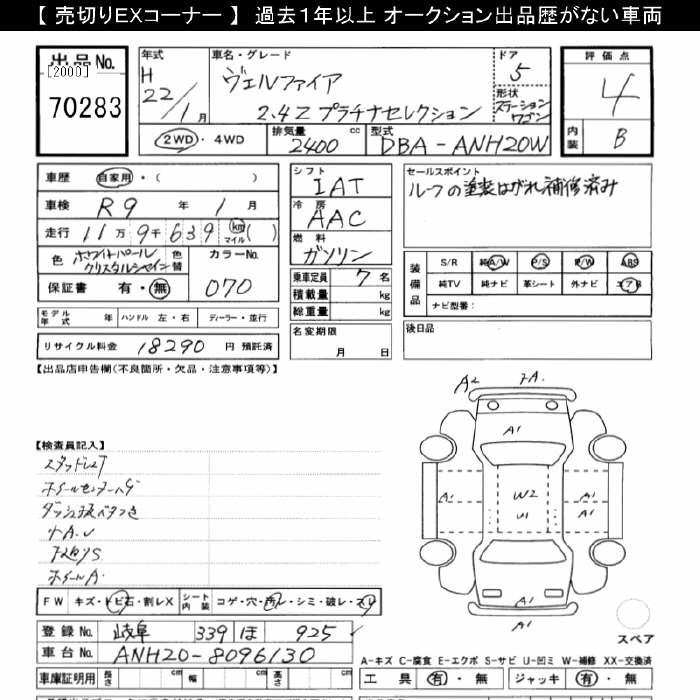 【 売切りEXコーナー 】 過去1年以上 オークション出品歴がない車両
出品No.
[2000]
70283
年式 H 22/1月
車名・グレード ヴェルファイア 2.4Z プラチナセレクション
ドア 5
形状 ステーションワゴン
評価点 4
内装 B
2WD・4WD
排気量 2400 cc
型式 DBA-ANH20W
車歴 自家用・( )
車検 R9 年 1 月
走行 11万9千639 km マイル ( )
色 ホワイトパールクリスタルシャイン 色替
カラーNo. 070
保証書 有・無
モデル年式 年 ハンドル 左・右 ディーラー・並行
リサイクル料金 18290 円 預託済
シフト IAT
冷房 AAC
燃料 ガソリン
乗車定員 7 名
積載量 kg
総重量 kg
名変期限 月 日
セールスポイント
ルーフの塗装はがれ補修済み
装備品 S/R 純A/W P/S P/W ABS
純TV 純ナビ 革シート 外ナビ エアB
ナビ型番:
後日品
【出品店申告欄(不良箇所・欠品・注意事項等)】
【検査員記入】
スタッドレス
ダッシュ板ベタつき
小A.U
ホイールA.
FW キズ・トビ石・割レX シート内装 コゲ・穴・汚レ・シミ・破レ・スリ
登録No. 岐阜 339 ほ 925
車台No. ANH20-8096130
車庫証明用 長さ cm 幅 cm 高さ cm
A2
A1
W2
U1
A1
A1
A1
スペア
A-キズ C-腐食 E-エクボ S-サビ U-凹ミ W-補修 XX-交換済
工具 有・無 ジャッキ 有・無